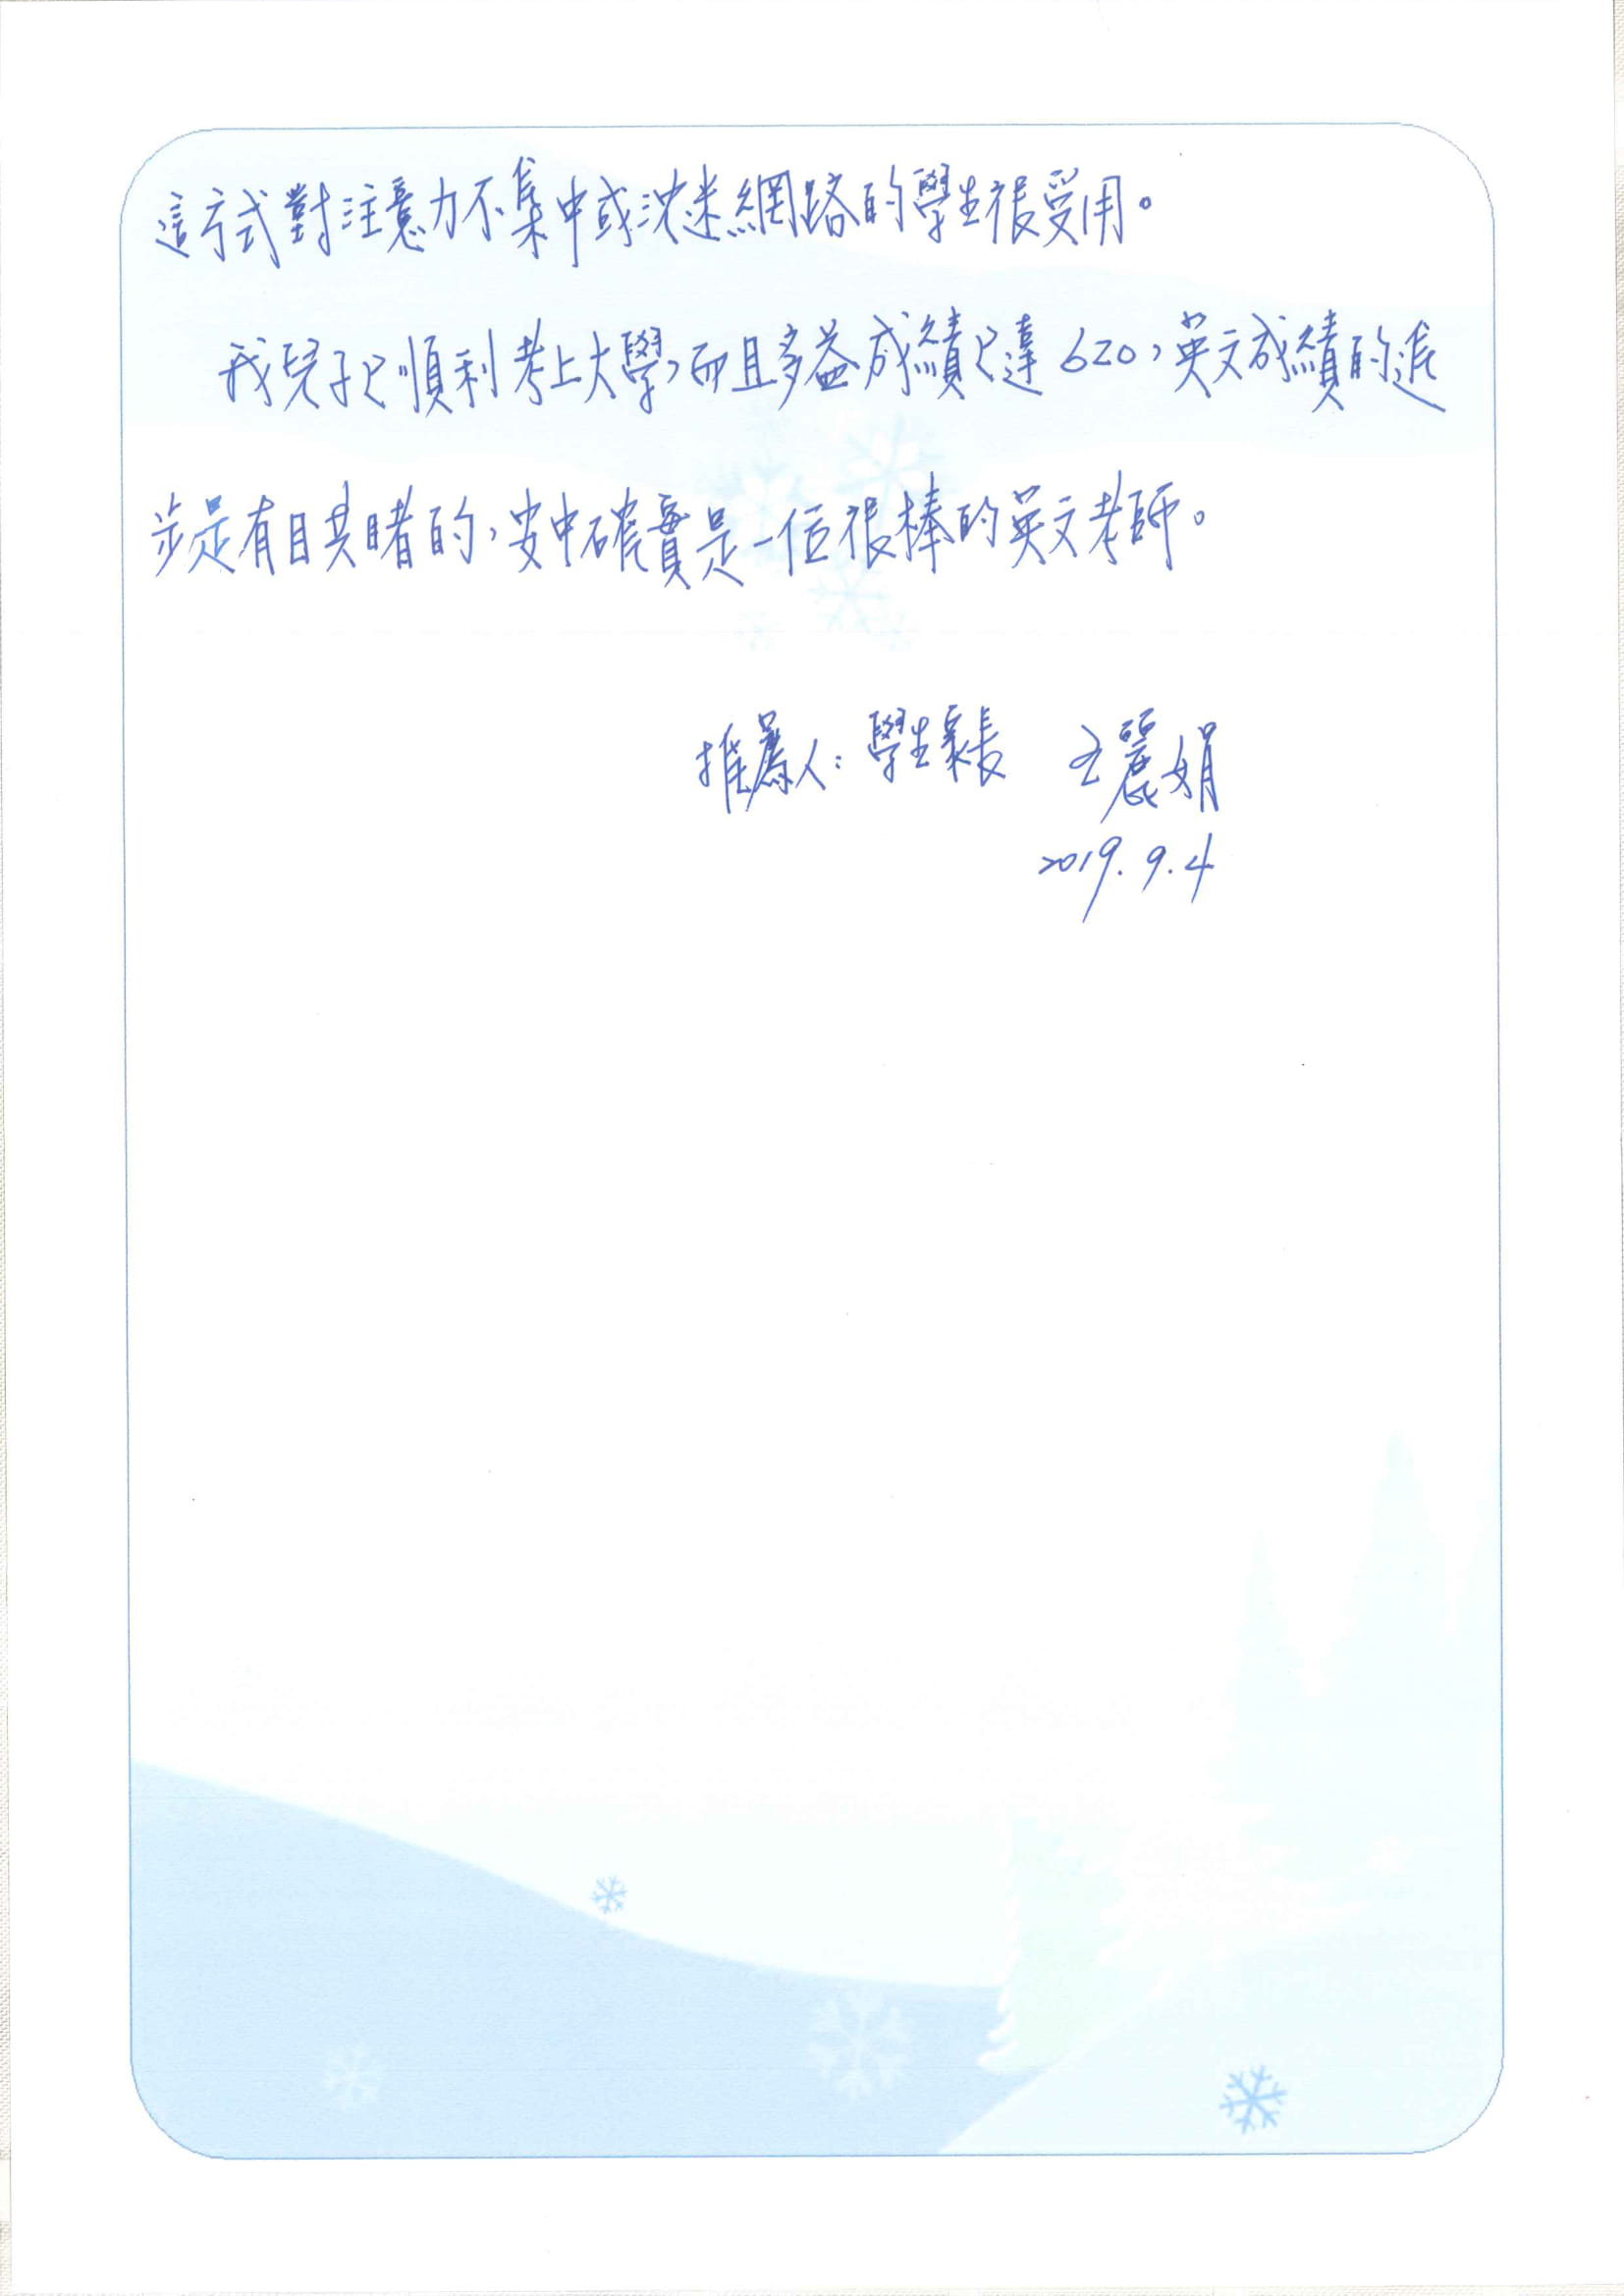 這方式對注意力不集中或沈迷網路的學生很受用。
我兒子已順利考上大學,而且多益成績已達620,英文成績的進
步是有目共睹的,安中確實是一位很棒的英文老師。
推薦人:學生家長 王麗娟
2019.9.4